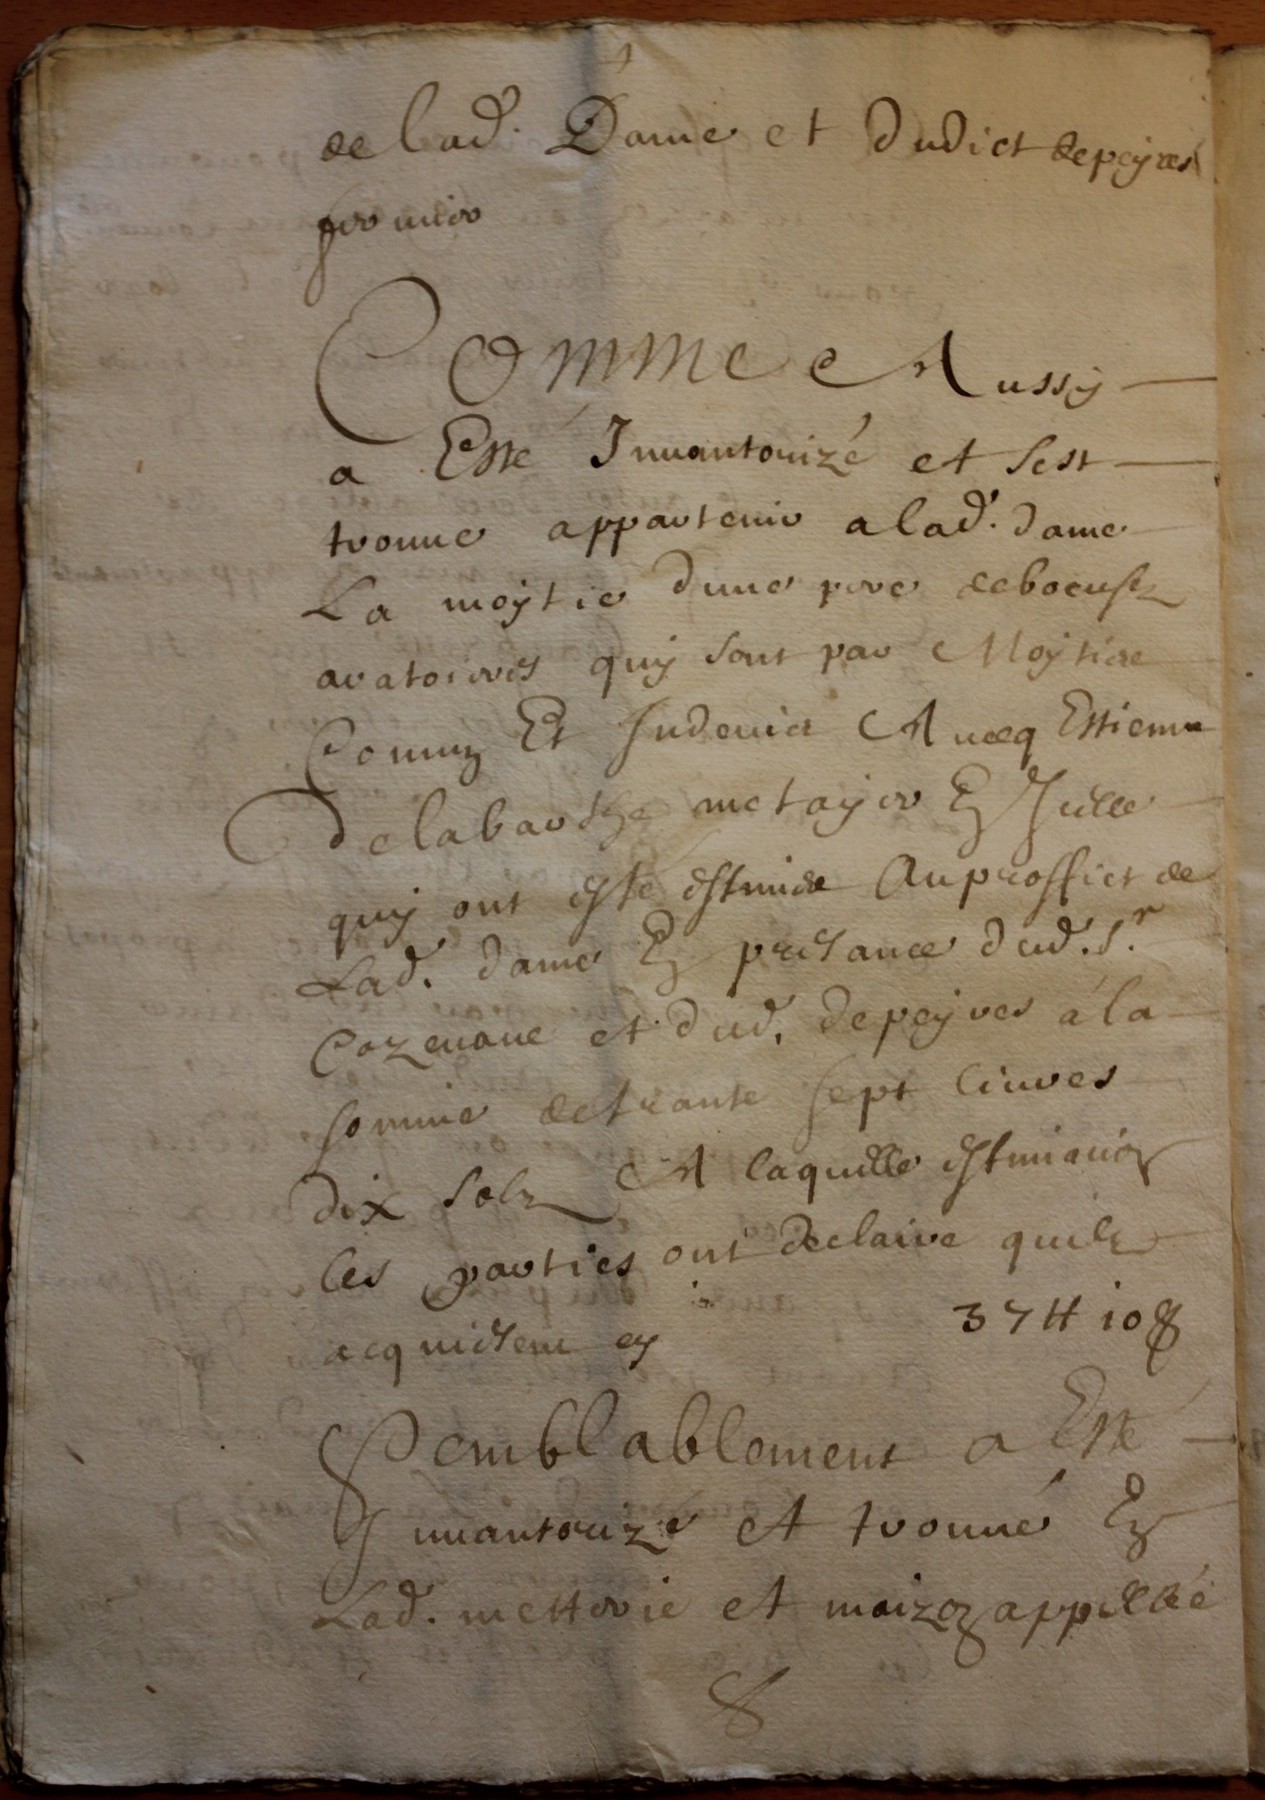 de lad. Dame et dudict depeyres
fermier
Comme Aussy
a Esté Inuantorizé et sest
trouue appartenir a lad. dame
La moytie dune pere de boeufz
aratoires quy sont par Moytiee
Comung Et Indeuis Auecq Estienne
delabarthe metayer En Icelle
quy ont esté estimee Au proffict de
Lad. dame En presance dud. Sr.
Cazenaue et dud. depeyres a la
somme de trante sept liures
dix solz A laquelle estimaion
les parties ont declaire quilz
acquiesent cy 37tt 10s
Semblablement a Esté
Inuantorize et trouué En
Lad. metterie et maizon appellée